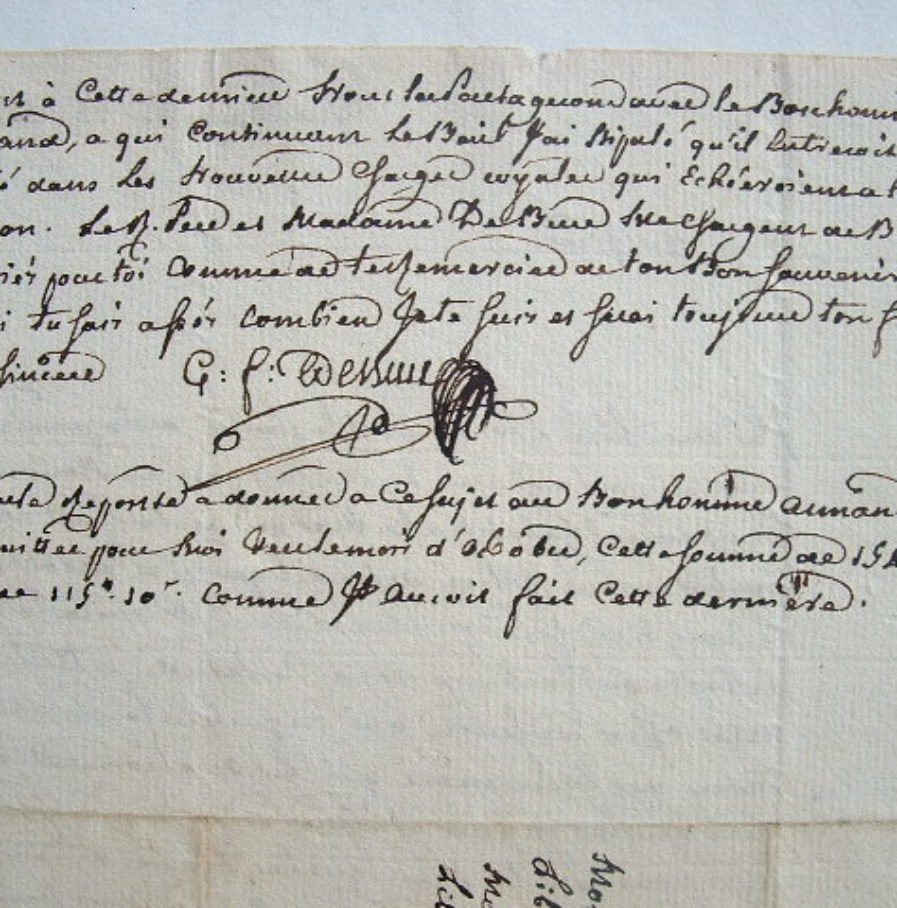 à Cette derniere Nous les Partageront avec le Bonhom
and, a qui Continuant le Bail J'ai Stipulé qu'il Entreroit
é dans les Nouvelles Charges royales qui Echéeroient a l
on. Le R. Pere et Madame De Me Chargent de B
pour toi Comme de te Remercier de ton Bon Souvenir
i tu sais assés Combien Je te suis et serai toujours ton
sincere G: f:
Reponse a donner a Ce sujet au Bonhomme armand
pour moi Vers le mois d'Octobre, Cette somme de 154
115ᵗᵗ. 10ˢ. Comme Il Auroit fait Cette derniére.
Mo
Lib
Mo
Lib